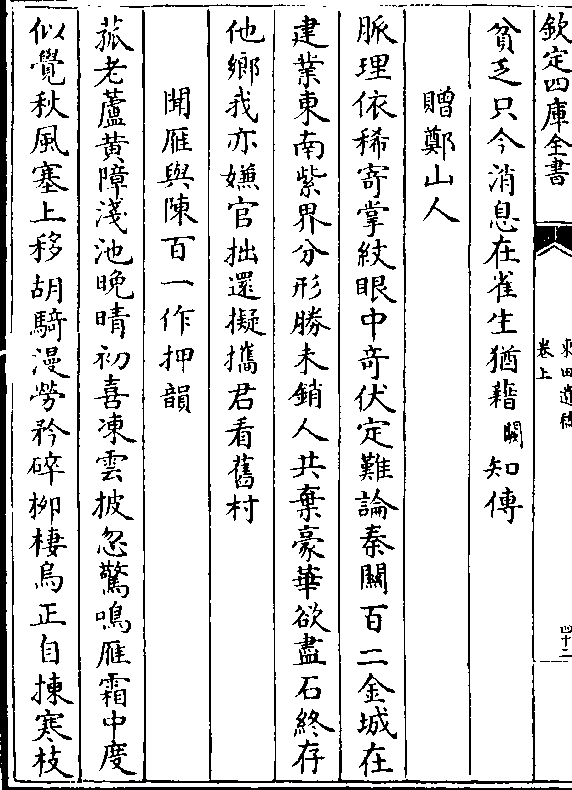 欽定四庫全書
東田遺稿
卷上
四十二
貧乏只今消息在雀生猶藉闕知傳
贈鄭山人
脈理依稀寄掌紋眼中奇伏定難論秦關百二金城在
建業東南紫界分形勝未銷人共棄豪華欲盡石終存
他鄉我亦嫌官拙還擬攜君看舊村
聞雁與陳百一作押韻
菰老蘆黃障淺池晚晴初喜凍雲披忽驚鳴雁霜中度
似覺秋風塞上移胡騎漫勞矜碎柳棲烏正自揀寒枝